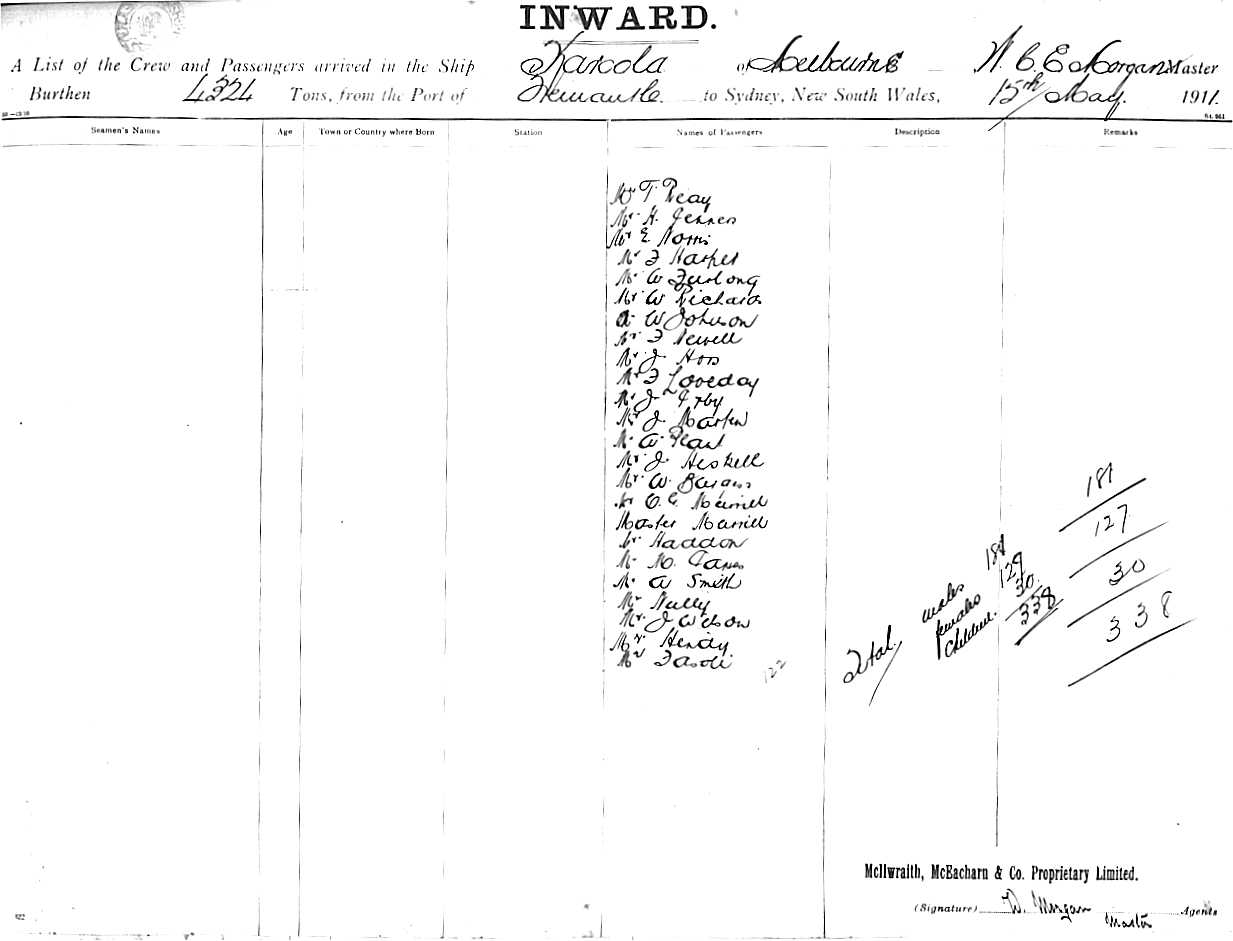 INWARD.
A List of the Crew and Passengers arrived in the Ship Karoola of Melbourne W. C. E. Morgan Master
Burthen 4324 Tons, from the Port of Fremantle to Sydney, New South Wales, 15th May 1911.
Seamen's Names Age Town or Country where Born Station Names of Passengers Description Remarks
Mr T Reay
Mr H. Jenners
Mr E Norris
Mr F Harper
Mr W Furlong
Mr W Richards
W Johnson
Mr F Newell
Mr J
Mr F Loveday
Mr J Irby
Mr J Martin
Mr A Plant
Mr J. Heskell
Mr W. Burgess
Mr C. E. Merrill
Master Merrill
Mr Haddon
Mr M.
Mr A Smith
Mr Nally
Mr J Wilson
Mr Hendy
Mr Fasoli
122
Total
males 181
females 127
children 30
338
181
127
30
338
McIlwraith, McEacharn & Co. Proprietary Limited.
(Signature) W. Morgan Agents
Master